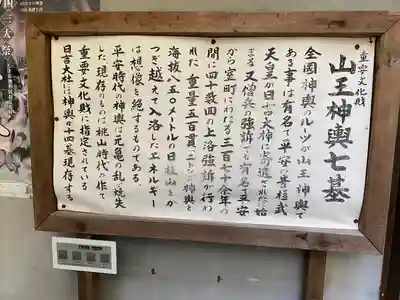 重要文化財
山王神輿七基
全国神輿のルーツが山王神輿で
ある事は有名で平安の昔桓武
天皇が日吉大神に寄進された始
まる又僧兵の強訴も有名で平安
から室町にわたる三百七十余年の
間に四十数回の上洛強訴が行わ
れた重量五百貫(二トン)の神輿を
海抜八五〇メートルの日枝山をか
つぎ越えて入洛したエネルギー
は想像を絶するものである
平安時代の神輿は元亀の乱で焼失
した現存のものは桃山時代の作で
重要文化財に指定されている
日吉大社には神輿が十四基現存する
国三大祭